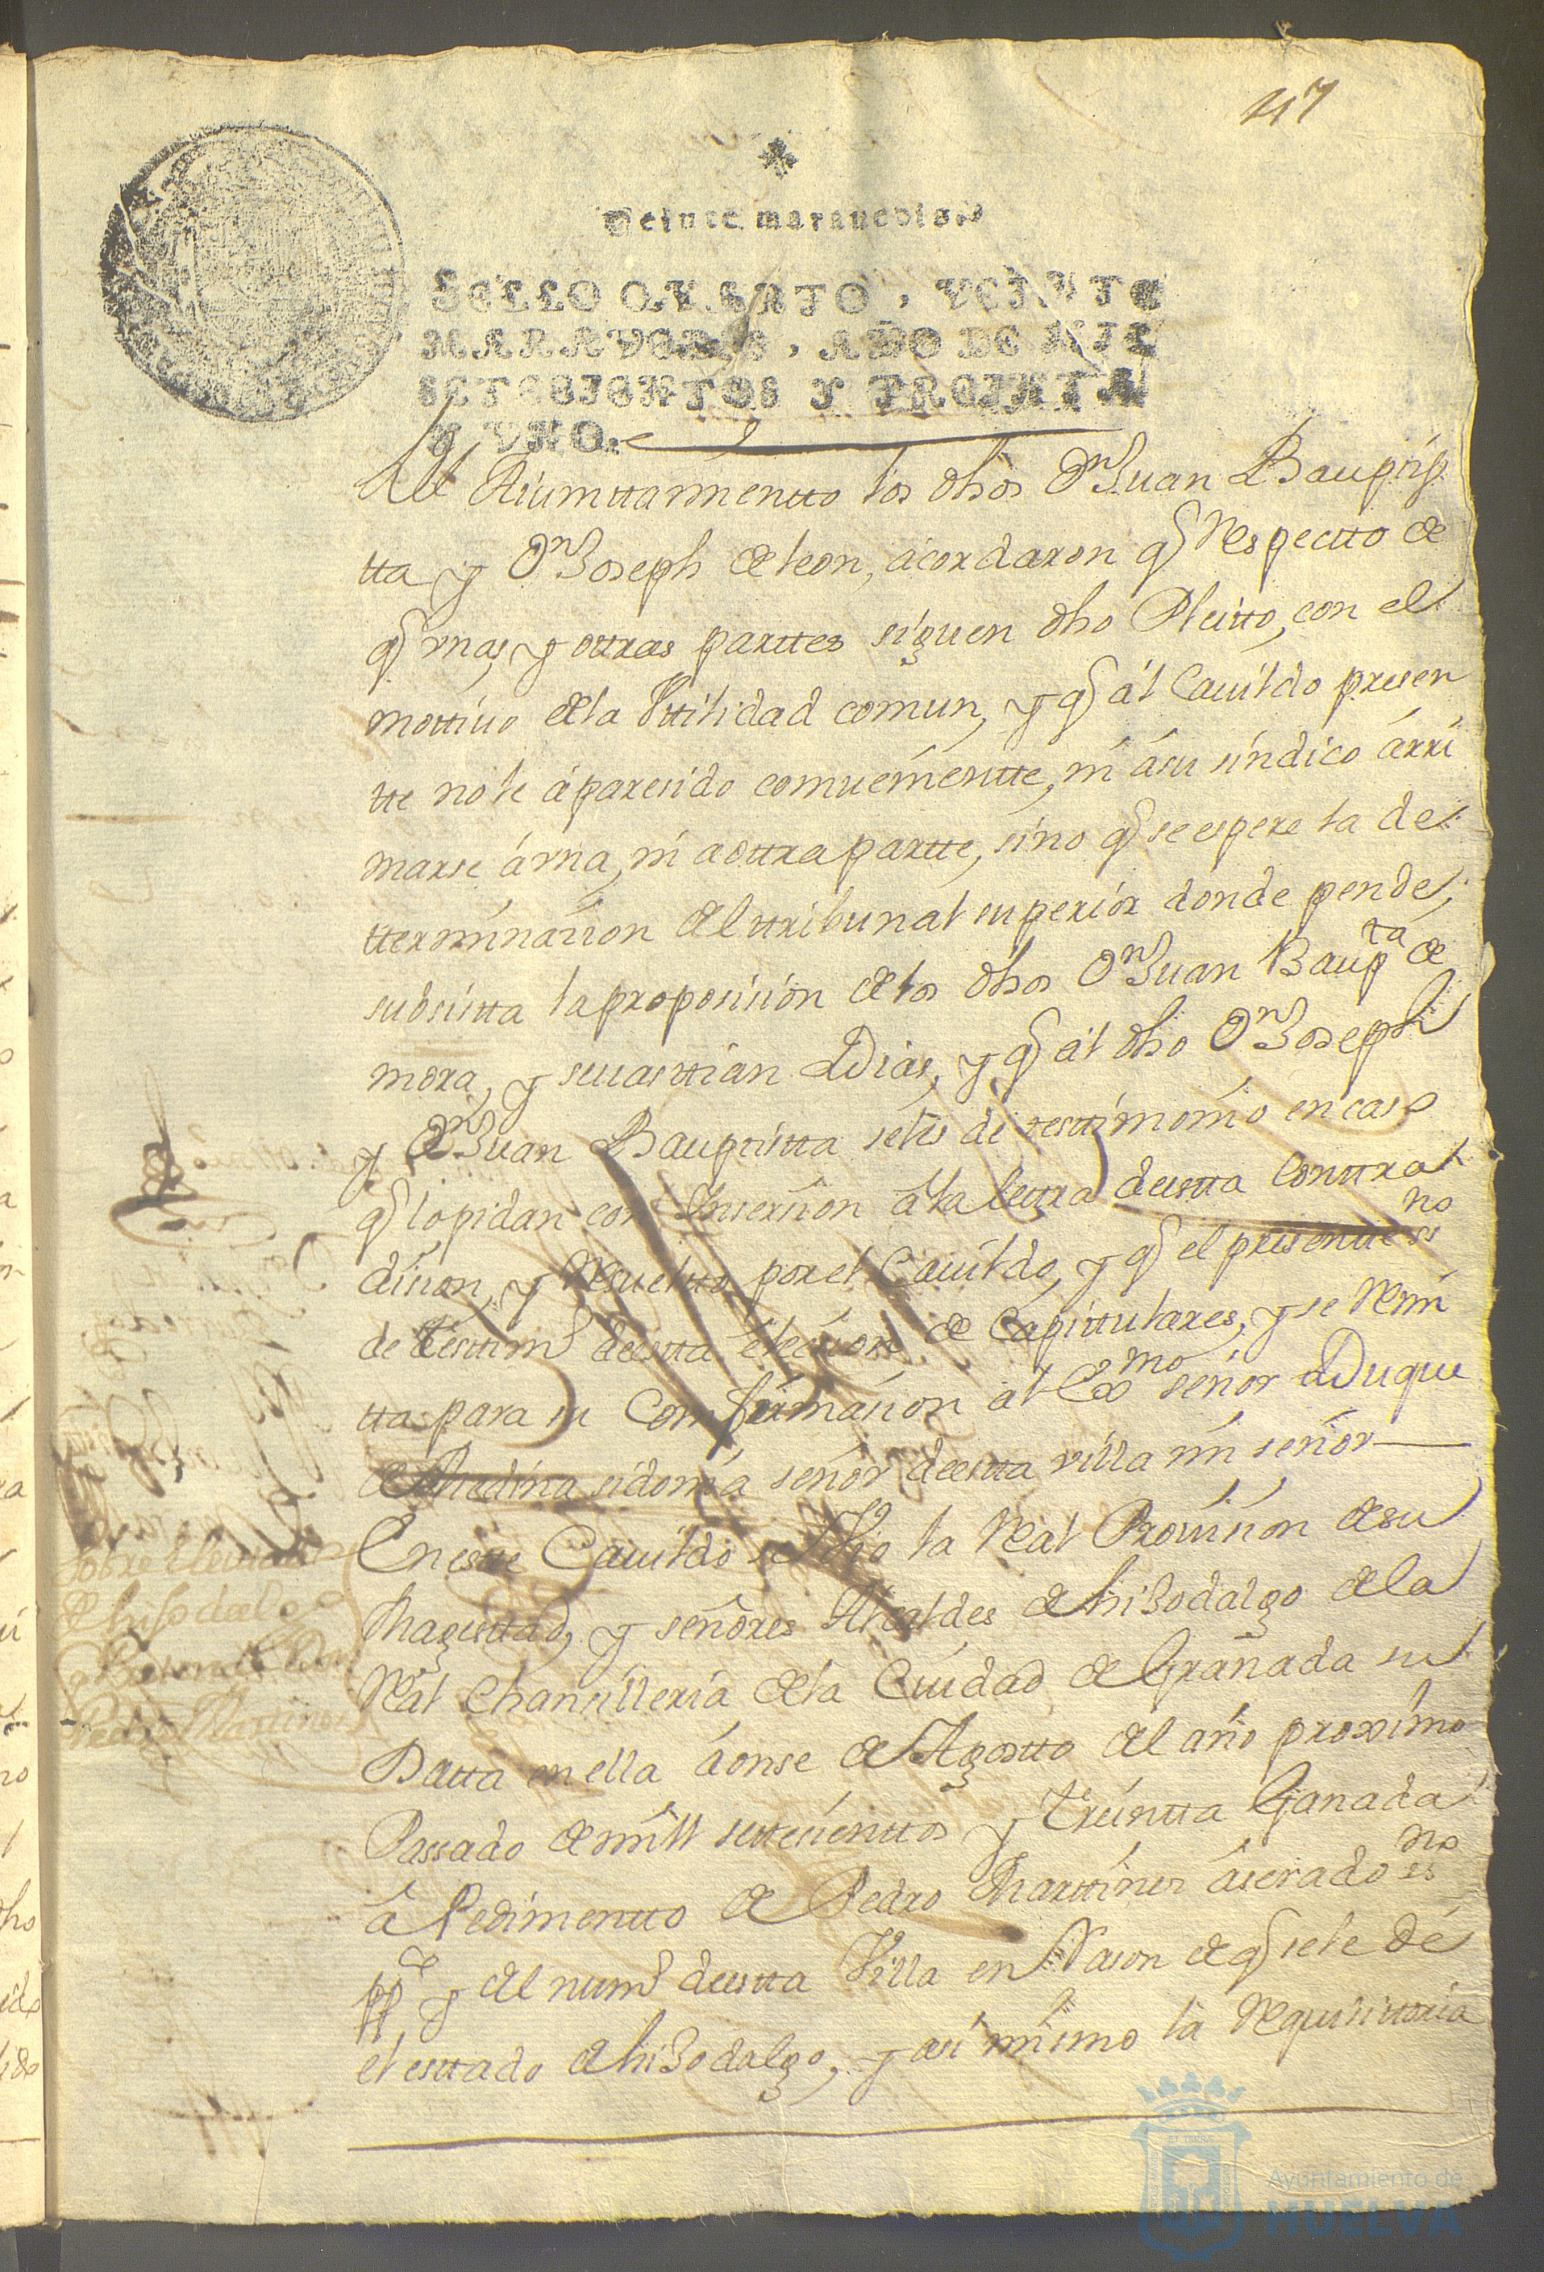 417
Veinte maravedis.
SELLO QVARTO, VEINTE
MARAVEDIS, AÑO DE MIL
SETECIENTOS Y TREINTA
Y VNO.
los dhos Dn Juan Bauptis
tta y Dn Joseph de leon, acordaron q Respectto de
q vnas, y ottras parttes siguen dho Pleitto, con el
mottivo de la Vttilidad comun, y q al Cavildo presen
tte no le a paresido combeniente, ni a su sindico arri
marse a vna, ni a ottra partte, sino q se espere la de
tterminasion del ttribunal superior donde pende,
subsistta la proposision de los dhos Dn Juan Baupta de
mora, y sevasttian Dias, y q al dho Dn Joseph
y Dn Juan Baupttista se les de testtimonio en caso
q lo pidan con Insersion a la lettra de esta Conttra
dision, y Resueltto por el Cavildo, y q el presentte ssno
de testtimo de estta elecsion de Capittulares, y se Remi
tta para su Confirmasion al Exmo señor Duque
de Medina sidonia señor de estta villa mi señor
En este Cavildo se Vio la Real Provision de su
Magesttad, y señores Alcaldes de hiJodalgo de la
Real Chansilleria de la Ciudad de Granada su
Datta en ella a onse de Agostto del año proximo
Passado de mill settesienttos y treintta Ganada
a Pedimentto de Pedro Marttines aserado ssno
ppco y del numo de estta Villa en Rason de q se le de
el esttado de hiJodalgo, y asi mismo la Requisittoria
sobre
de hijodalgo
Pedro Martines
Ayuntamiento de
HUELVA